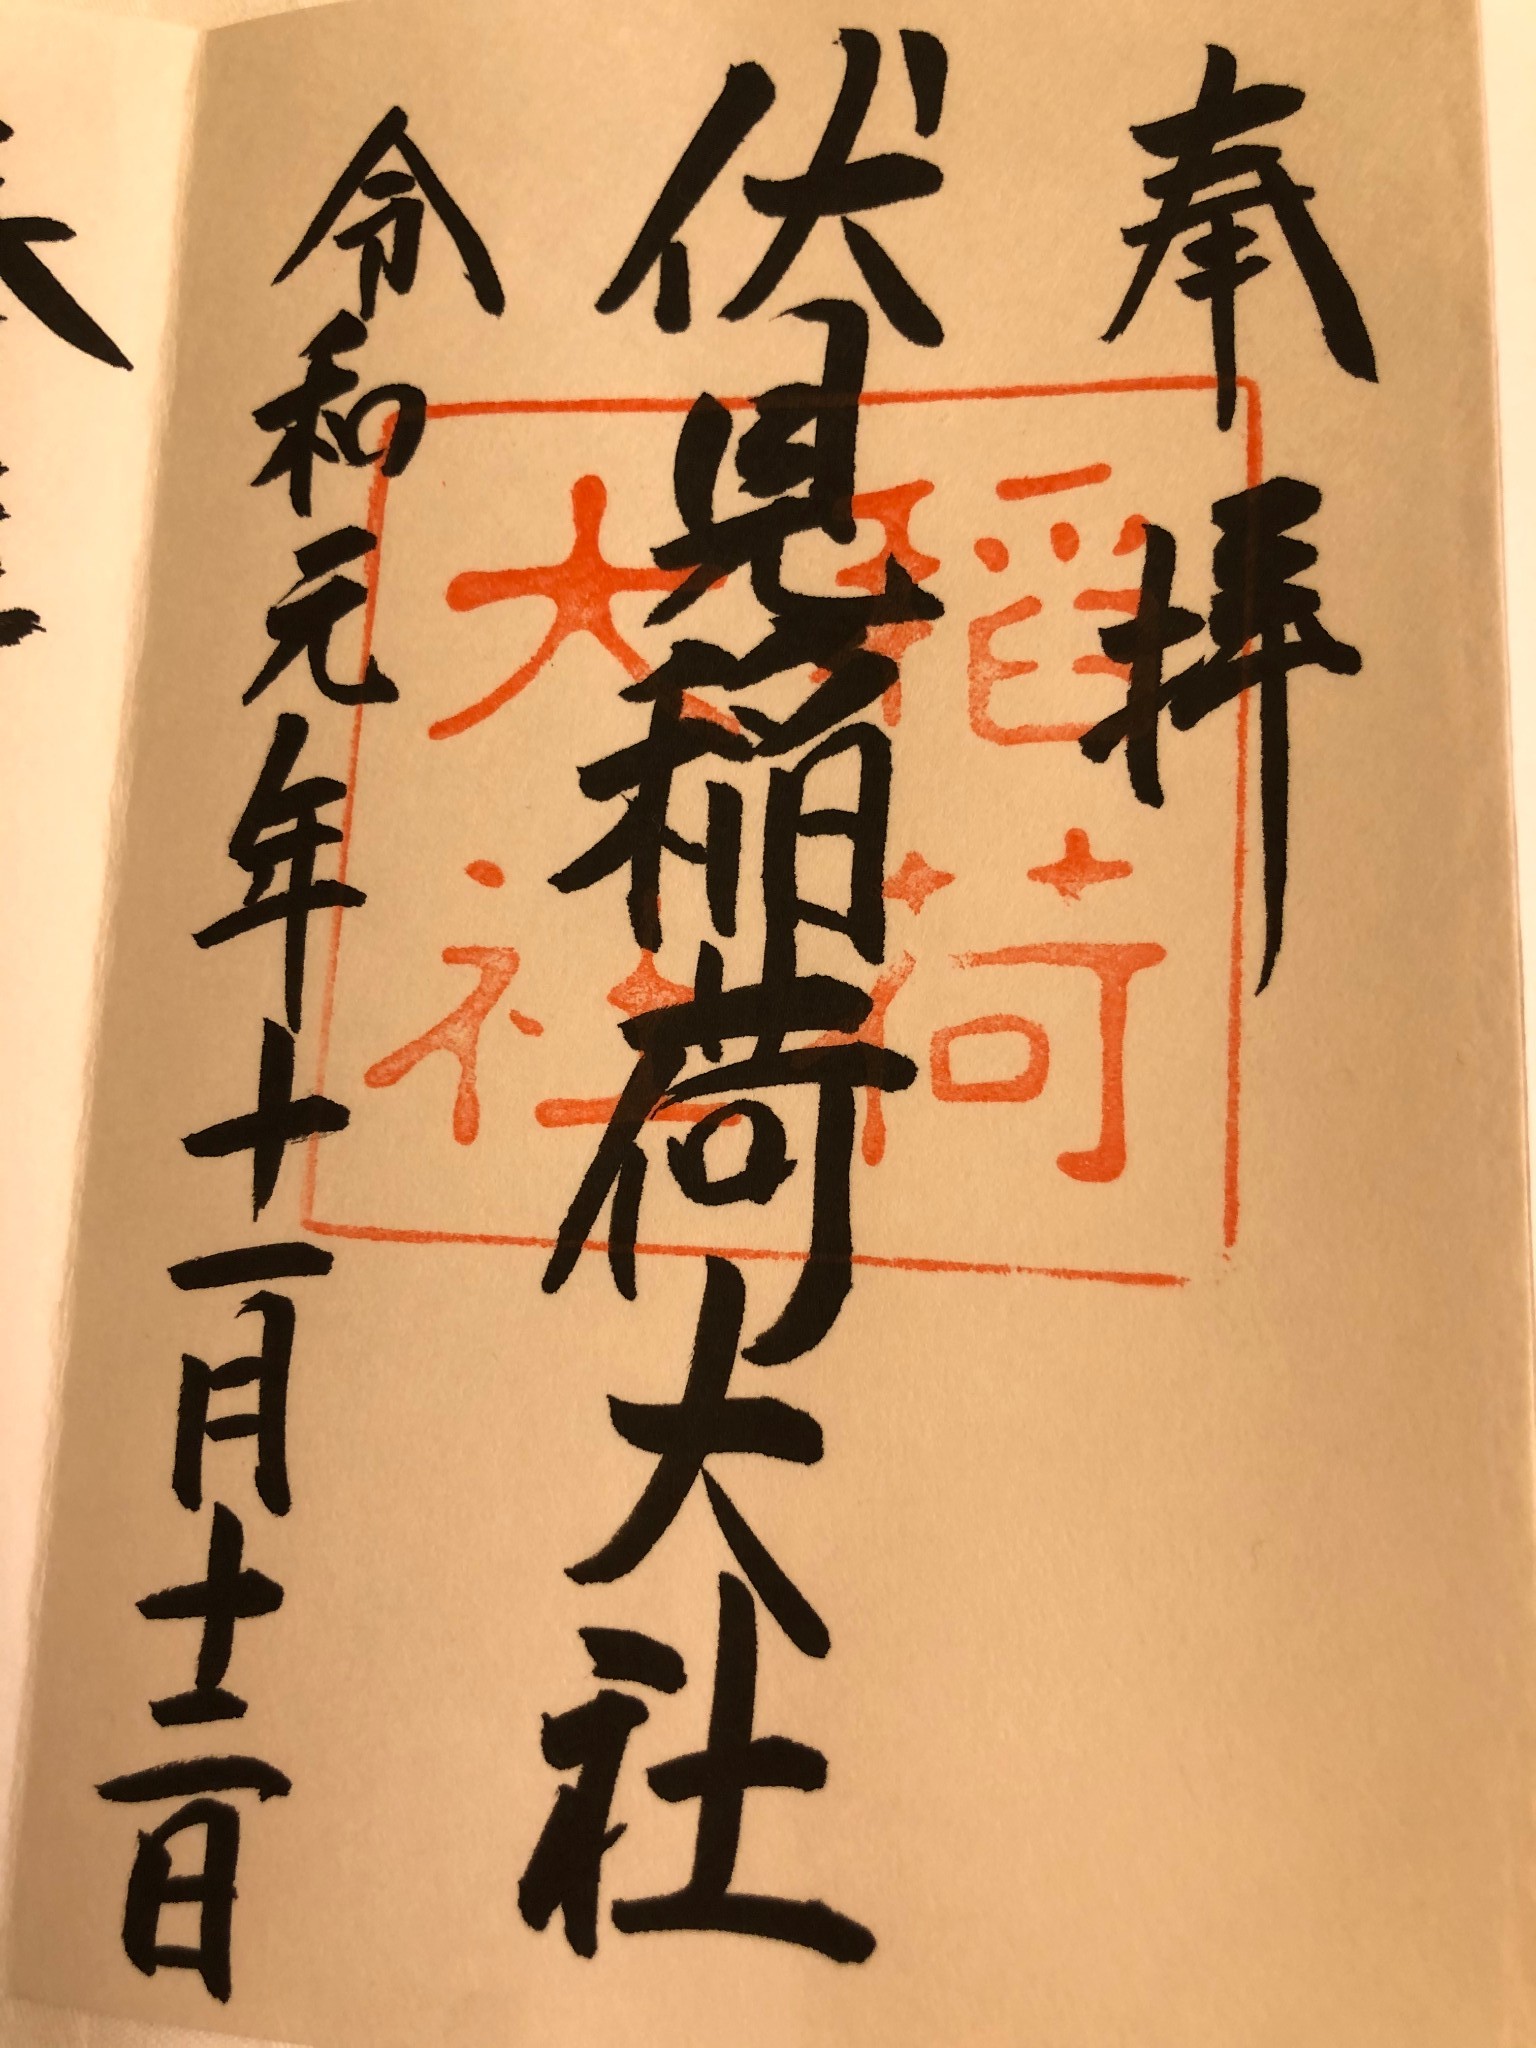 奉拝
伏見稲荷大社
令和元年十一月十二日
稲荷
大社